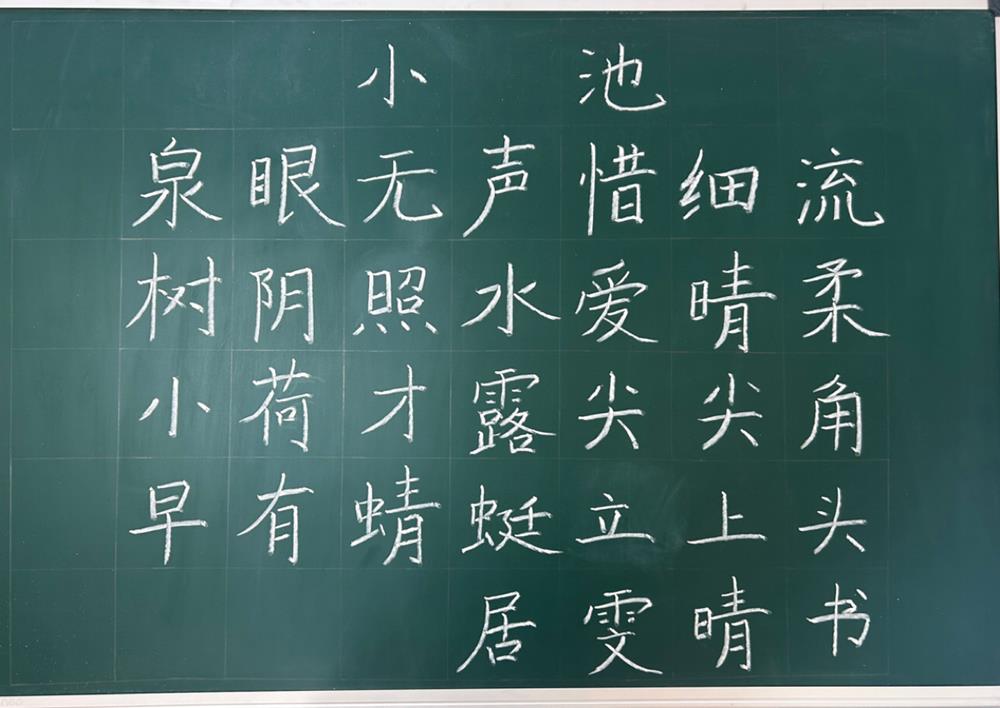 小池
泉眼无声惜细流
树阴照水爱晴柔
小荷才露尖尖角
早有蜻蜓立上头
居雯晴书